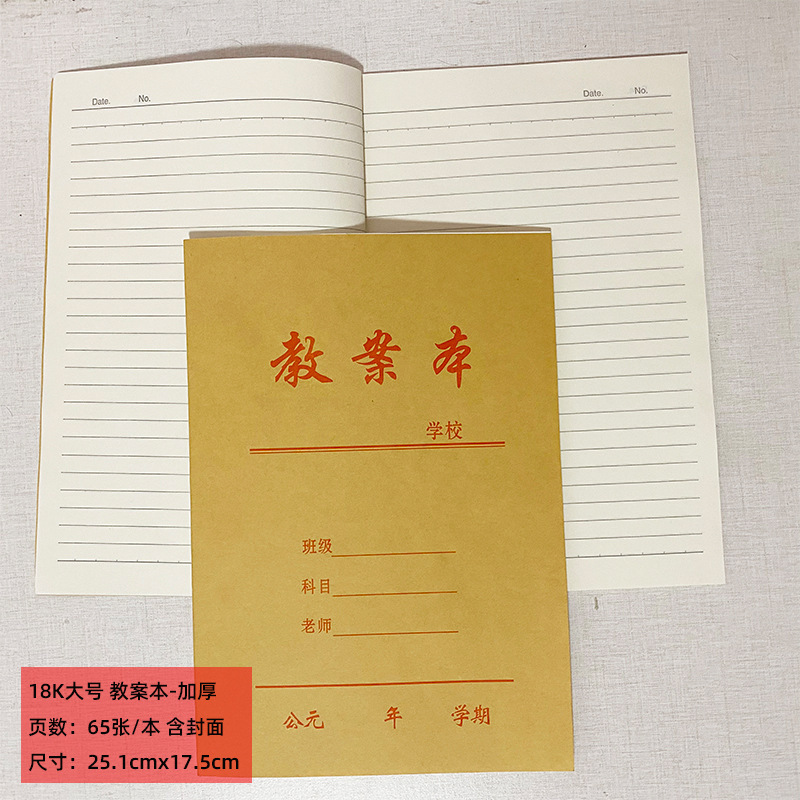 Date. No.
Date. No.
教案本
学校
班级
科目
老师
公元 年 学期
18K大号 教案本-加厚
页数：65张/本 含封面
尺寸：25.1cmx17.5cm